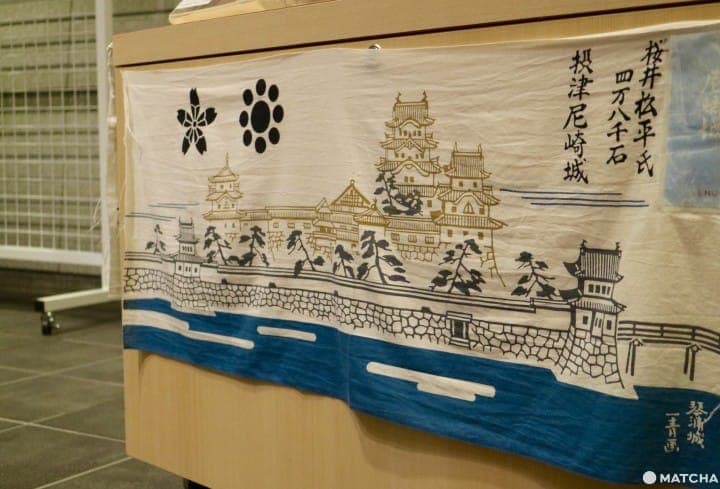 桜井松平氏
四万八千石
摂津尼崎城
琴浦城
一青画
MATCHA